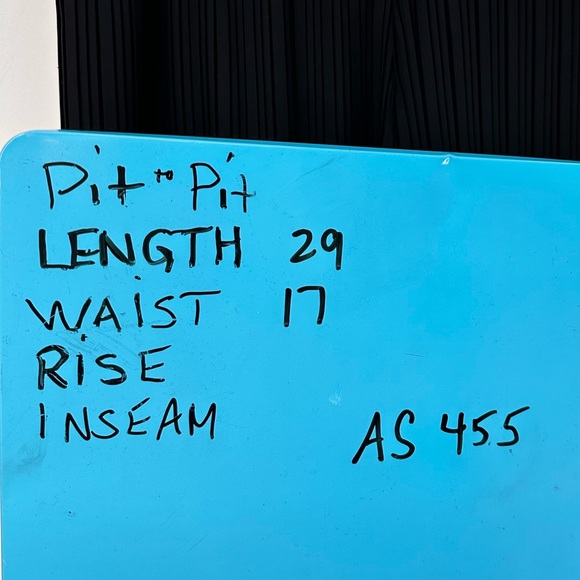 Pit to Pit
LENGTH 29
WAIST 17
RISE
INSEAM
AS 455